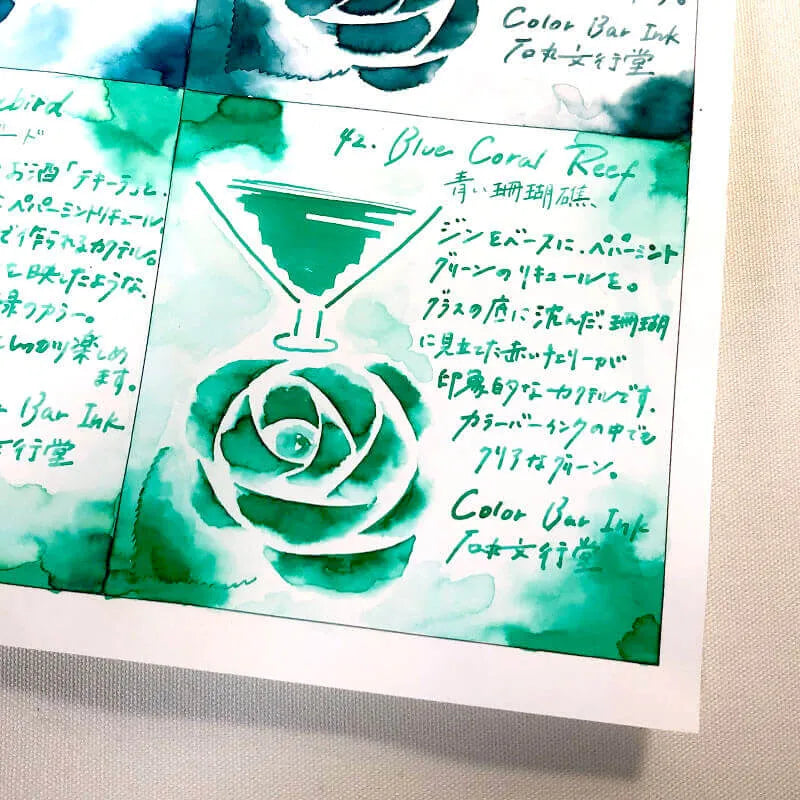 Color Bar Ink
石丸文行堂
ebird
バード
お酒「テキーラ」と、
ペパーミントリキュール
で作られるカクテル。
を映したような、
緑のカラー。
しっかり楽しめ
ます。
Bar Ink
文行堂
42. Blue Coral Reef
青い珊瑚礁、
ジンをベースに、ペパーミント
グリーンのリキュールを。
グラスの底に沈んだ、珊瑚
に見立てた赤いチェリーが
印象的なカクテルです。
カラーバーインクの中でも
クリアなグリーン。
Color Bar Ink
石丸文行堂